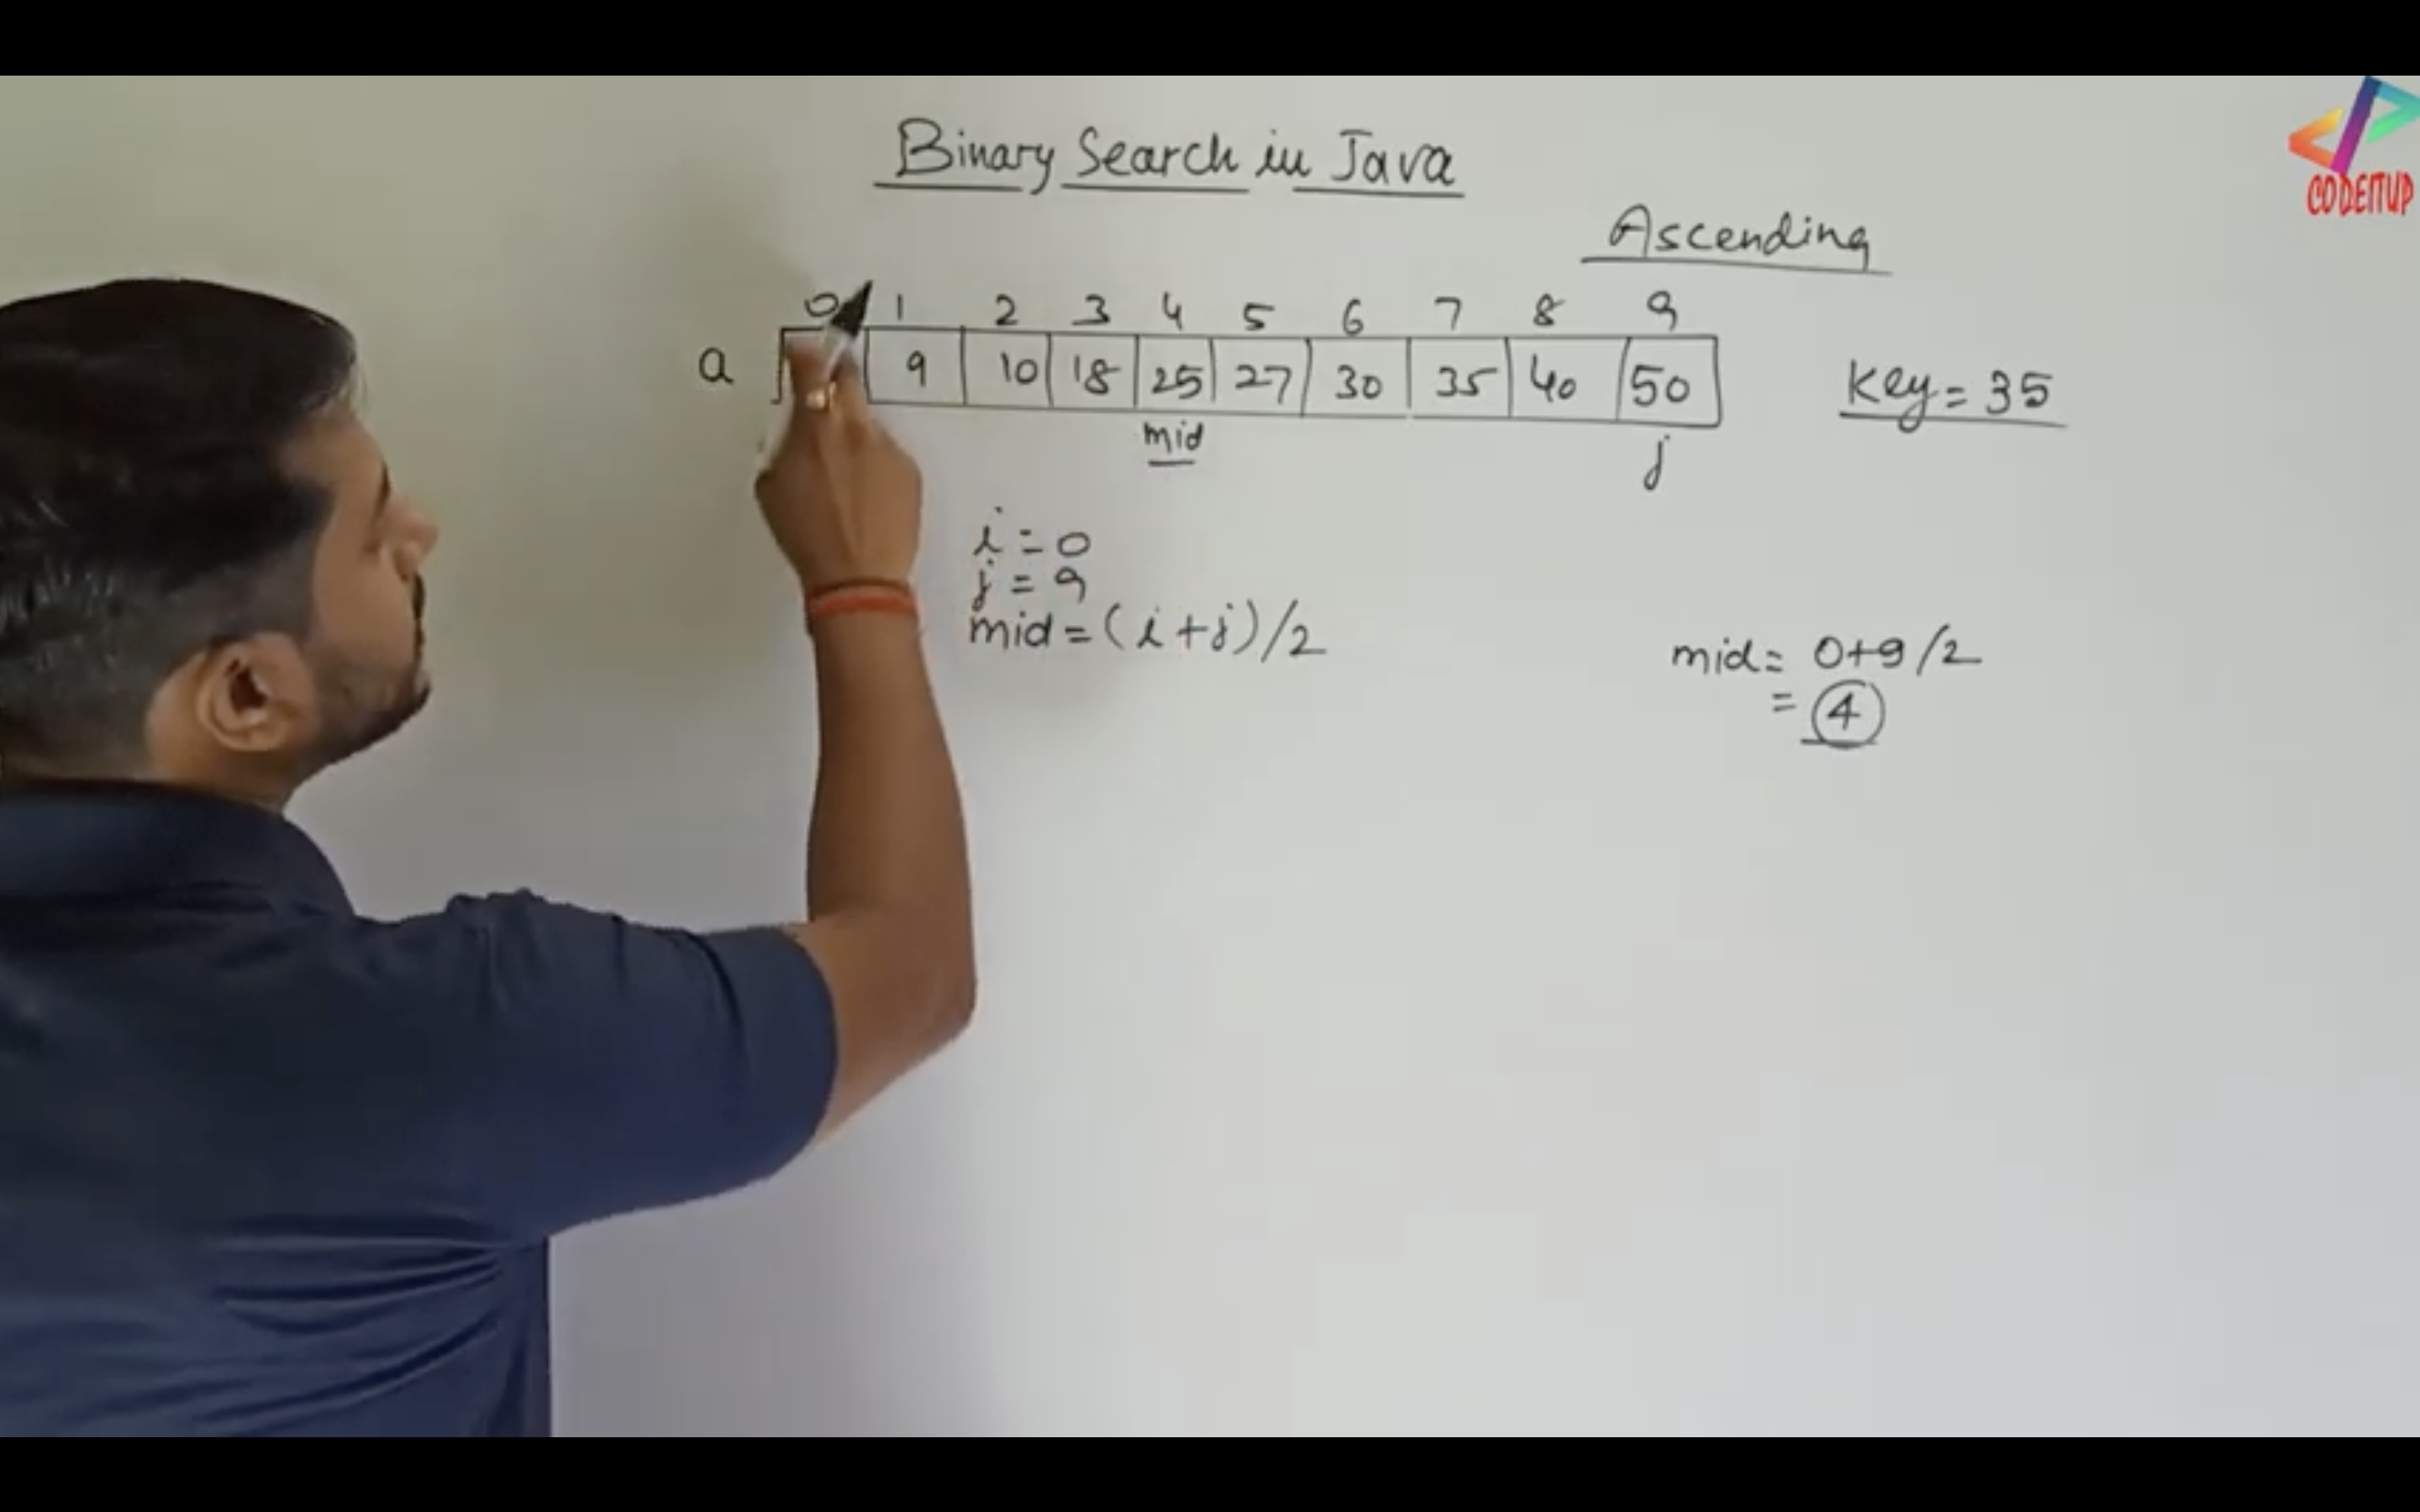 Binary Search in Java
CODEITUP
Ascending
0 1 2 3 4 5 6 7 8 9
a 9 10 18 25 27 30 35 40 50 Key = 35
mid j
i = 0
j = 9
mid = (i+j)/2
mid = 0+9/2
= 4